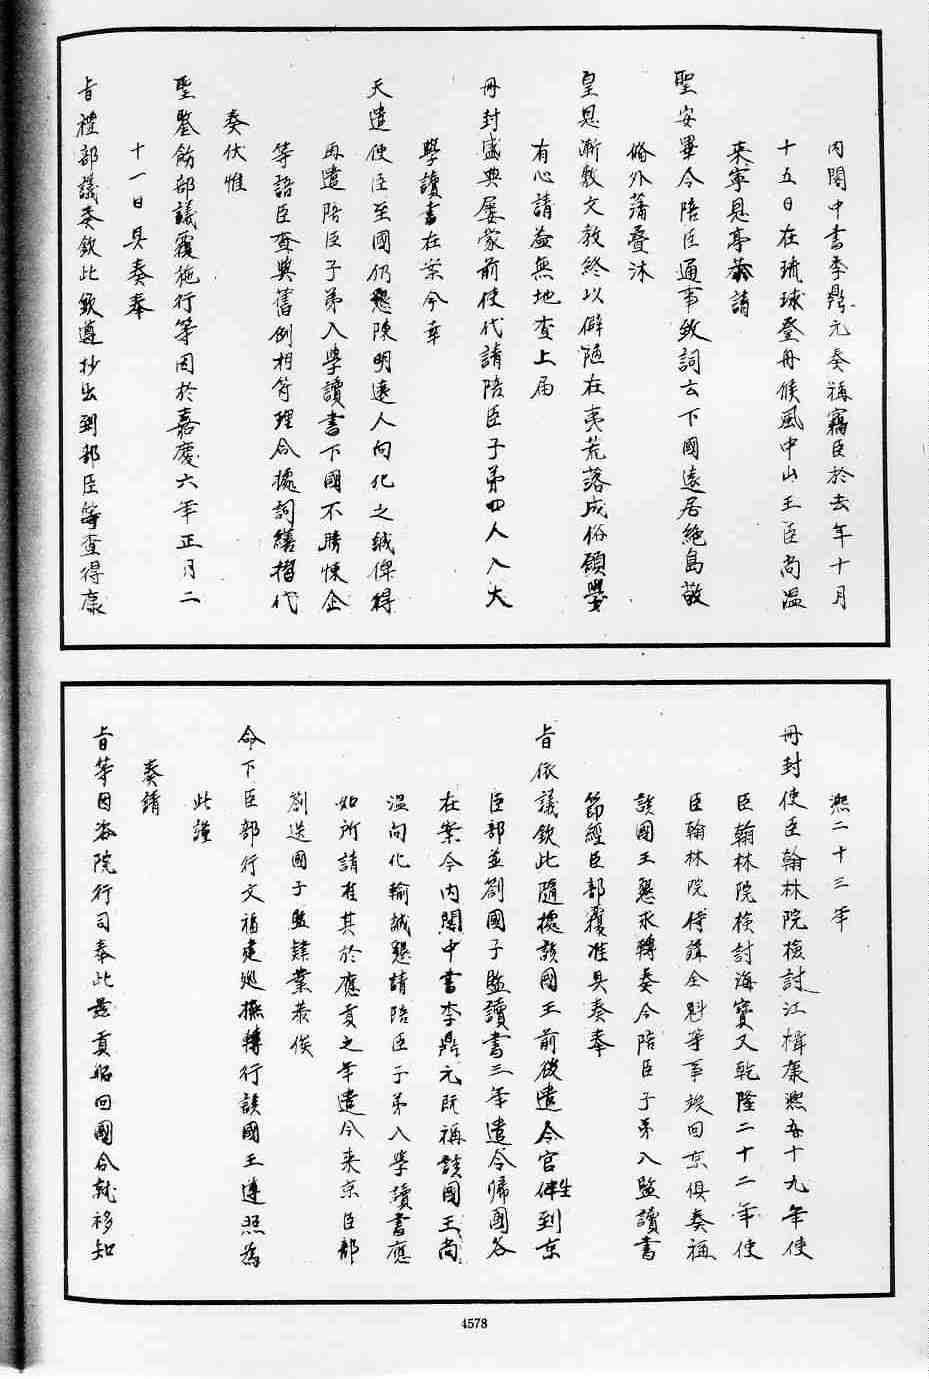 內閣中書李鼎元奏稱竊臣於去年十月
十五日在琉球登舟候風中山王臣尚溫
來寧恩亭恭請
聖安畢令陪臣通事致詞云下國遠居絶島敬
備外藩疊沐
皇恩漸敷文教終以僻陋在夷荒落成俗願學
有心請益無地查上届
冊封盛典屡蒙前使代請陪臣子弟四人入大
學讀書在案今幸
天遣使臣至國仍懇陳明遠人向化之誠俾得
再遣陪臣子弟入學讀書下國不勝悚企
等語臣查與舊例相符理合據詞繕摺代
奏伏惟
聖鑒飭部議覆施行等因於嘉慶六年正月二
十一日具奏奉
旨禮部議奏欽此欽遵抄出到部臣等查得康
熙二十三年
冊封使臣翰林院檢討汪楫康熙五十九年使
臣翰林院檢討海寶又乾隆二十二年使
臣翰林院侍講全魁等事竣回京俱奏稱
該國王懇求轉奏令陪臣子弟入監讀書
節經臣部覆准具奏奉
旨依議欽此隨據該國王前後遣令官生到京
臣部並劄國子監讀書三年遣令歸國各
在案今內閣中書李鼎元既稱該國王尚
溫向化輸誠懇請陪臣子弟入學讀書應
如所請准其於應貢之年遣令來京臣部
劄送國子監肄業恭俟
命下臣部行文福建巡撫轉行該國王遵照為
此謹
奏請
旨等因咨院行司奉此茲貢船回國合就移知
4578